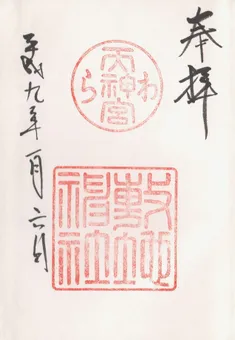 奉拝
天神宮
わら
敷地
神社
平成九年一月六日